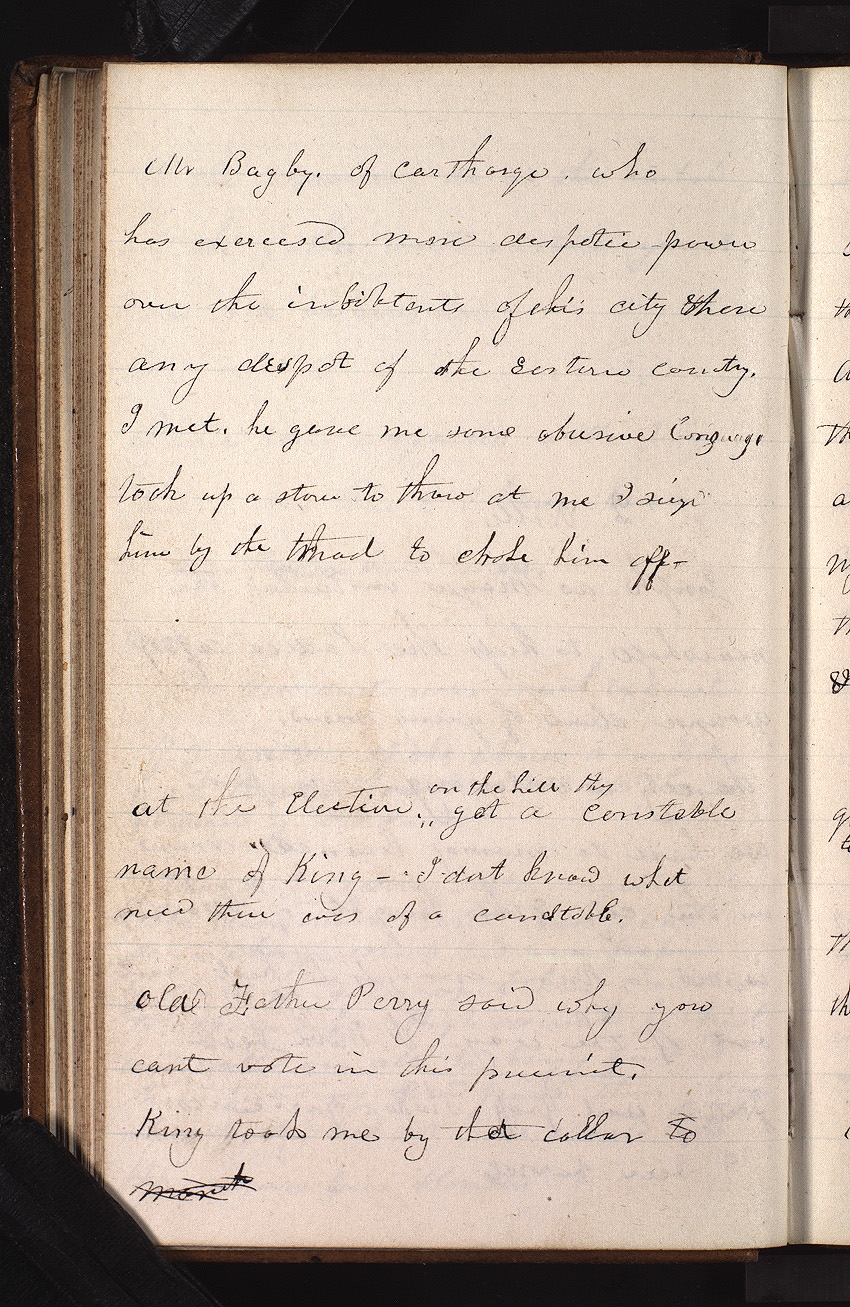 Mr Bagby. of carthage. who
has exercised more despotic power
over the inhbitants of this city there
any despot of the Eastern country.
I met. he gave me some abusive language
took up a stone to throw at me I siezd
him by the throad to choke him off—
at the Election. on the hill they got a constable
name of King— I dont know what
need there was of a constable.
old Father Perry said why you
cant vote in this precinct.
King took me by the collar to